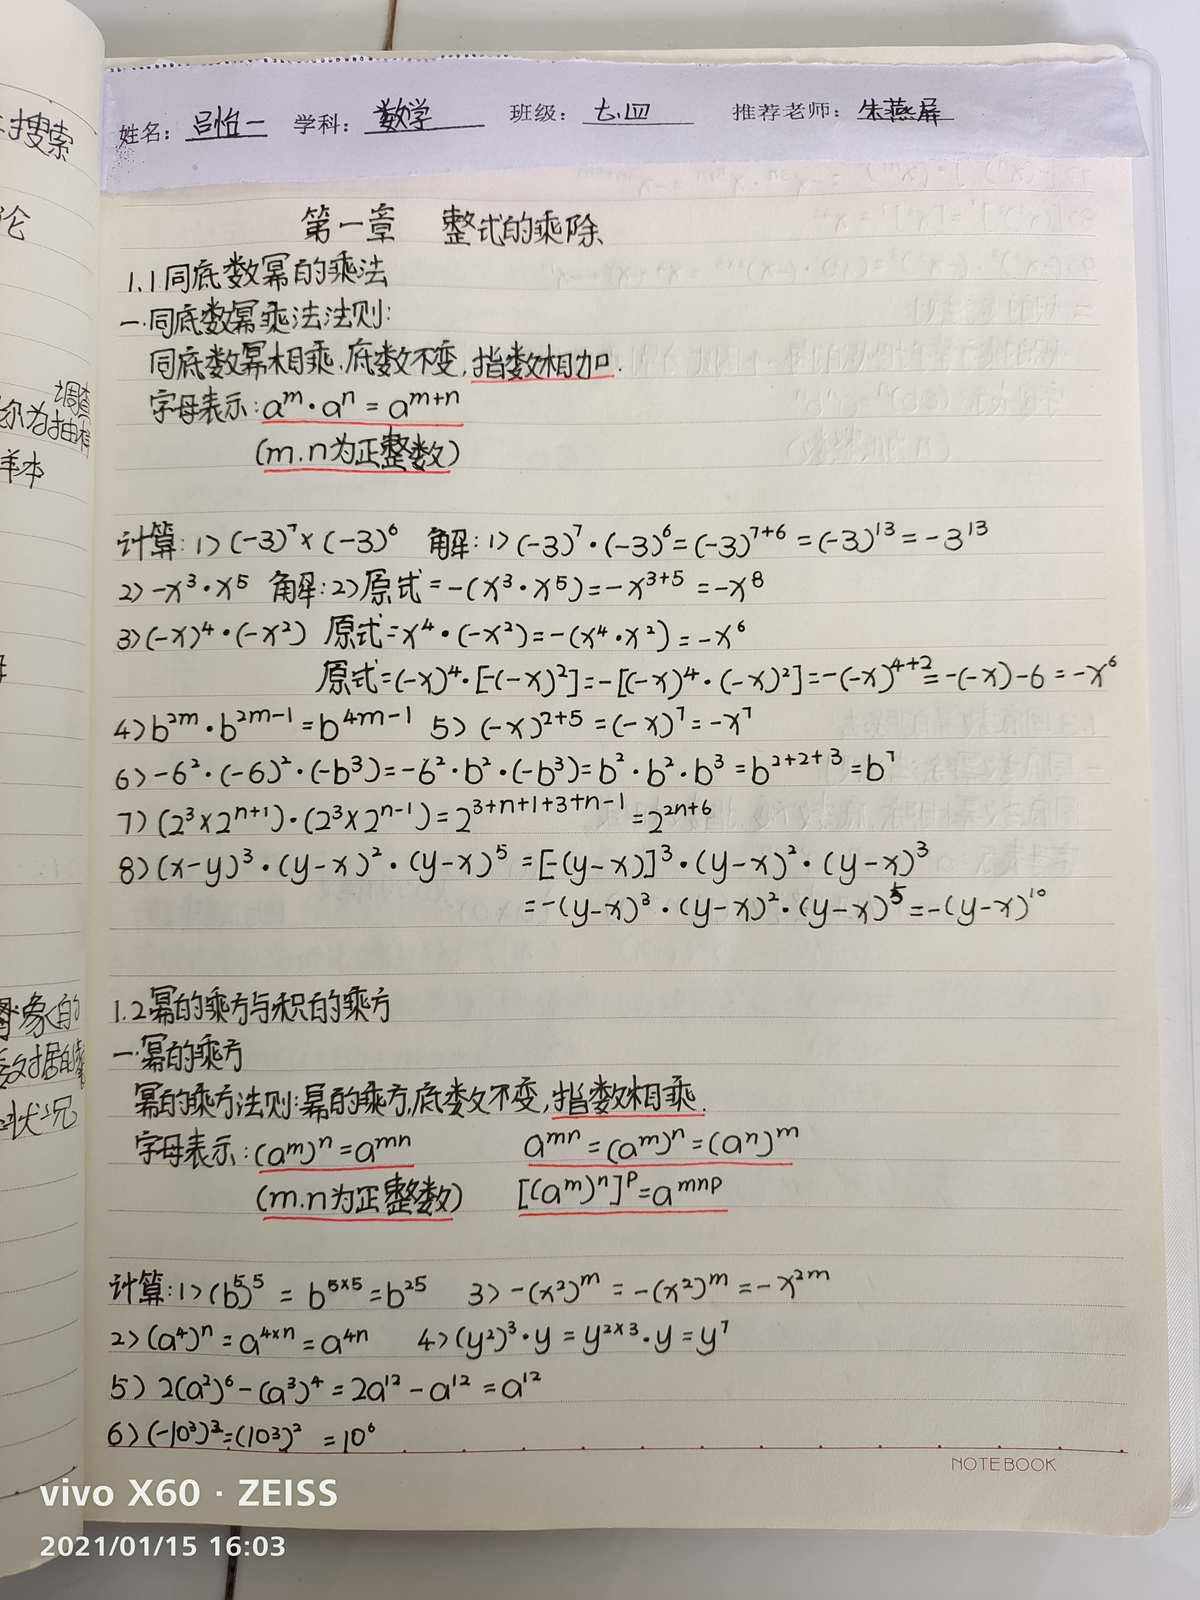 姓名：吕怡一 学科：数学 班级：七.四 推荐老师：朱燕屏
搜索
论
调查
称为抽样
样本
第一章 整式的乘除
1.1同底数幂的乘法
一.同底数幂乘法法则:
同底数幂相乘,底数不变,指数相加.
字母表示:aᵐ·aⁿ=aᵐ⁺ⁿ
(m.n为正整数)
计算:1)(-3)⁷×(-3)⁶ 解:1)(-3)⁷·(-3)⁶=(-3)⁷⁺⁶=(-3)¹³=-3¹³
2)-x³·x⁵ 解:2)原式=-(x³·x⁵)=-x³⁺⁵=-x⁸
3)(-x)⁴·(-x²) 原式=x⁴·(-x²)=-(x⁴·x²)=-x⁶
原式=(-x)⁴·[-(-x)²]=-[(-x)⁴·(-x)²]=-(-x)⁴⁺²=-(-x)-6=-x⁶
4)b²ᵐ·b²ᵐ⁻¹=b⁴ᵐ⁻¹ 5)(-x)²⁺⁵=(-x)⁷=-x⁷
6)-6²·(-6)²·(-b³)=-6²·b²·(-b³)=b²·b²·b³=b²⁺²⁺³=b⁷
7)(2³×2ⁿ⁺¹)·(2³×2ⁿ⁻¹)=2³⁺ⁿ⁺¹⁺³⁺ⁿ⁻¹=2²ⁿ⁺⁶
8)(x-y)³·(y-x)²·(y-x)⁵=[-(y-x)]³·(y-x)²·(y-x)³
=-(y-x)³·(y-x)²·(y-x)⁵=-(y-x)¹⁰
1.2幂的乘方与积的乘方
一.幂的乘方
幂的乘方法则:幂的乘方,底数不变,指数相乘.
字母表示:(aᵐ)ⁿ=aᵐⁿ aᵐⁿ=(aᵐ)ⁿ=(aⁿ)ᵐ
(m.n为正整数) [(aᵐ)ⁿ]ᵖ=aᵐⁿᵖ
计算:1)(b⁵)⁵=b⁵ˣ⁵=b²⁵ 3)-(x²)ᵐ=-(x²)ᵐ=-x²ᵐ
2)(a⁴)ⁿ=a⁴ˣⁿ=a⁴ⁿ 4)(y²)³·y=y²ˣ³·y=y⁷
5)2(a²)⁶-(a³)⁴=2a¹²-a¹²=a¹²
6)(-10³)²=(10³)²=10⁶
NOTEBOOK
象的
状况
vivo X60 · ZEISS
2021/01/15 16:03